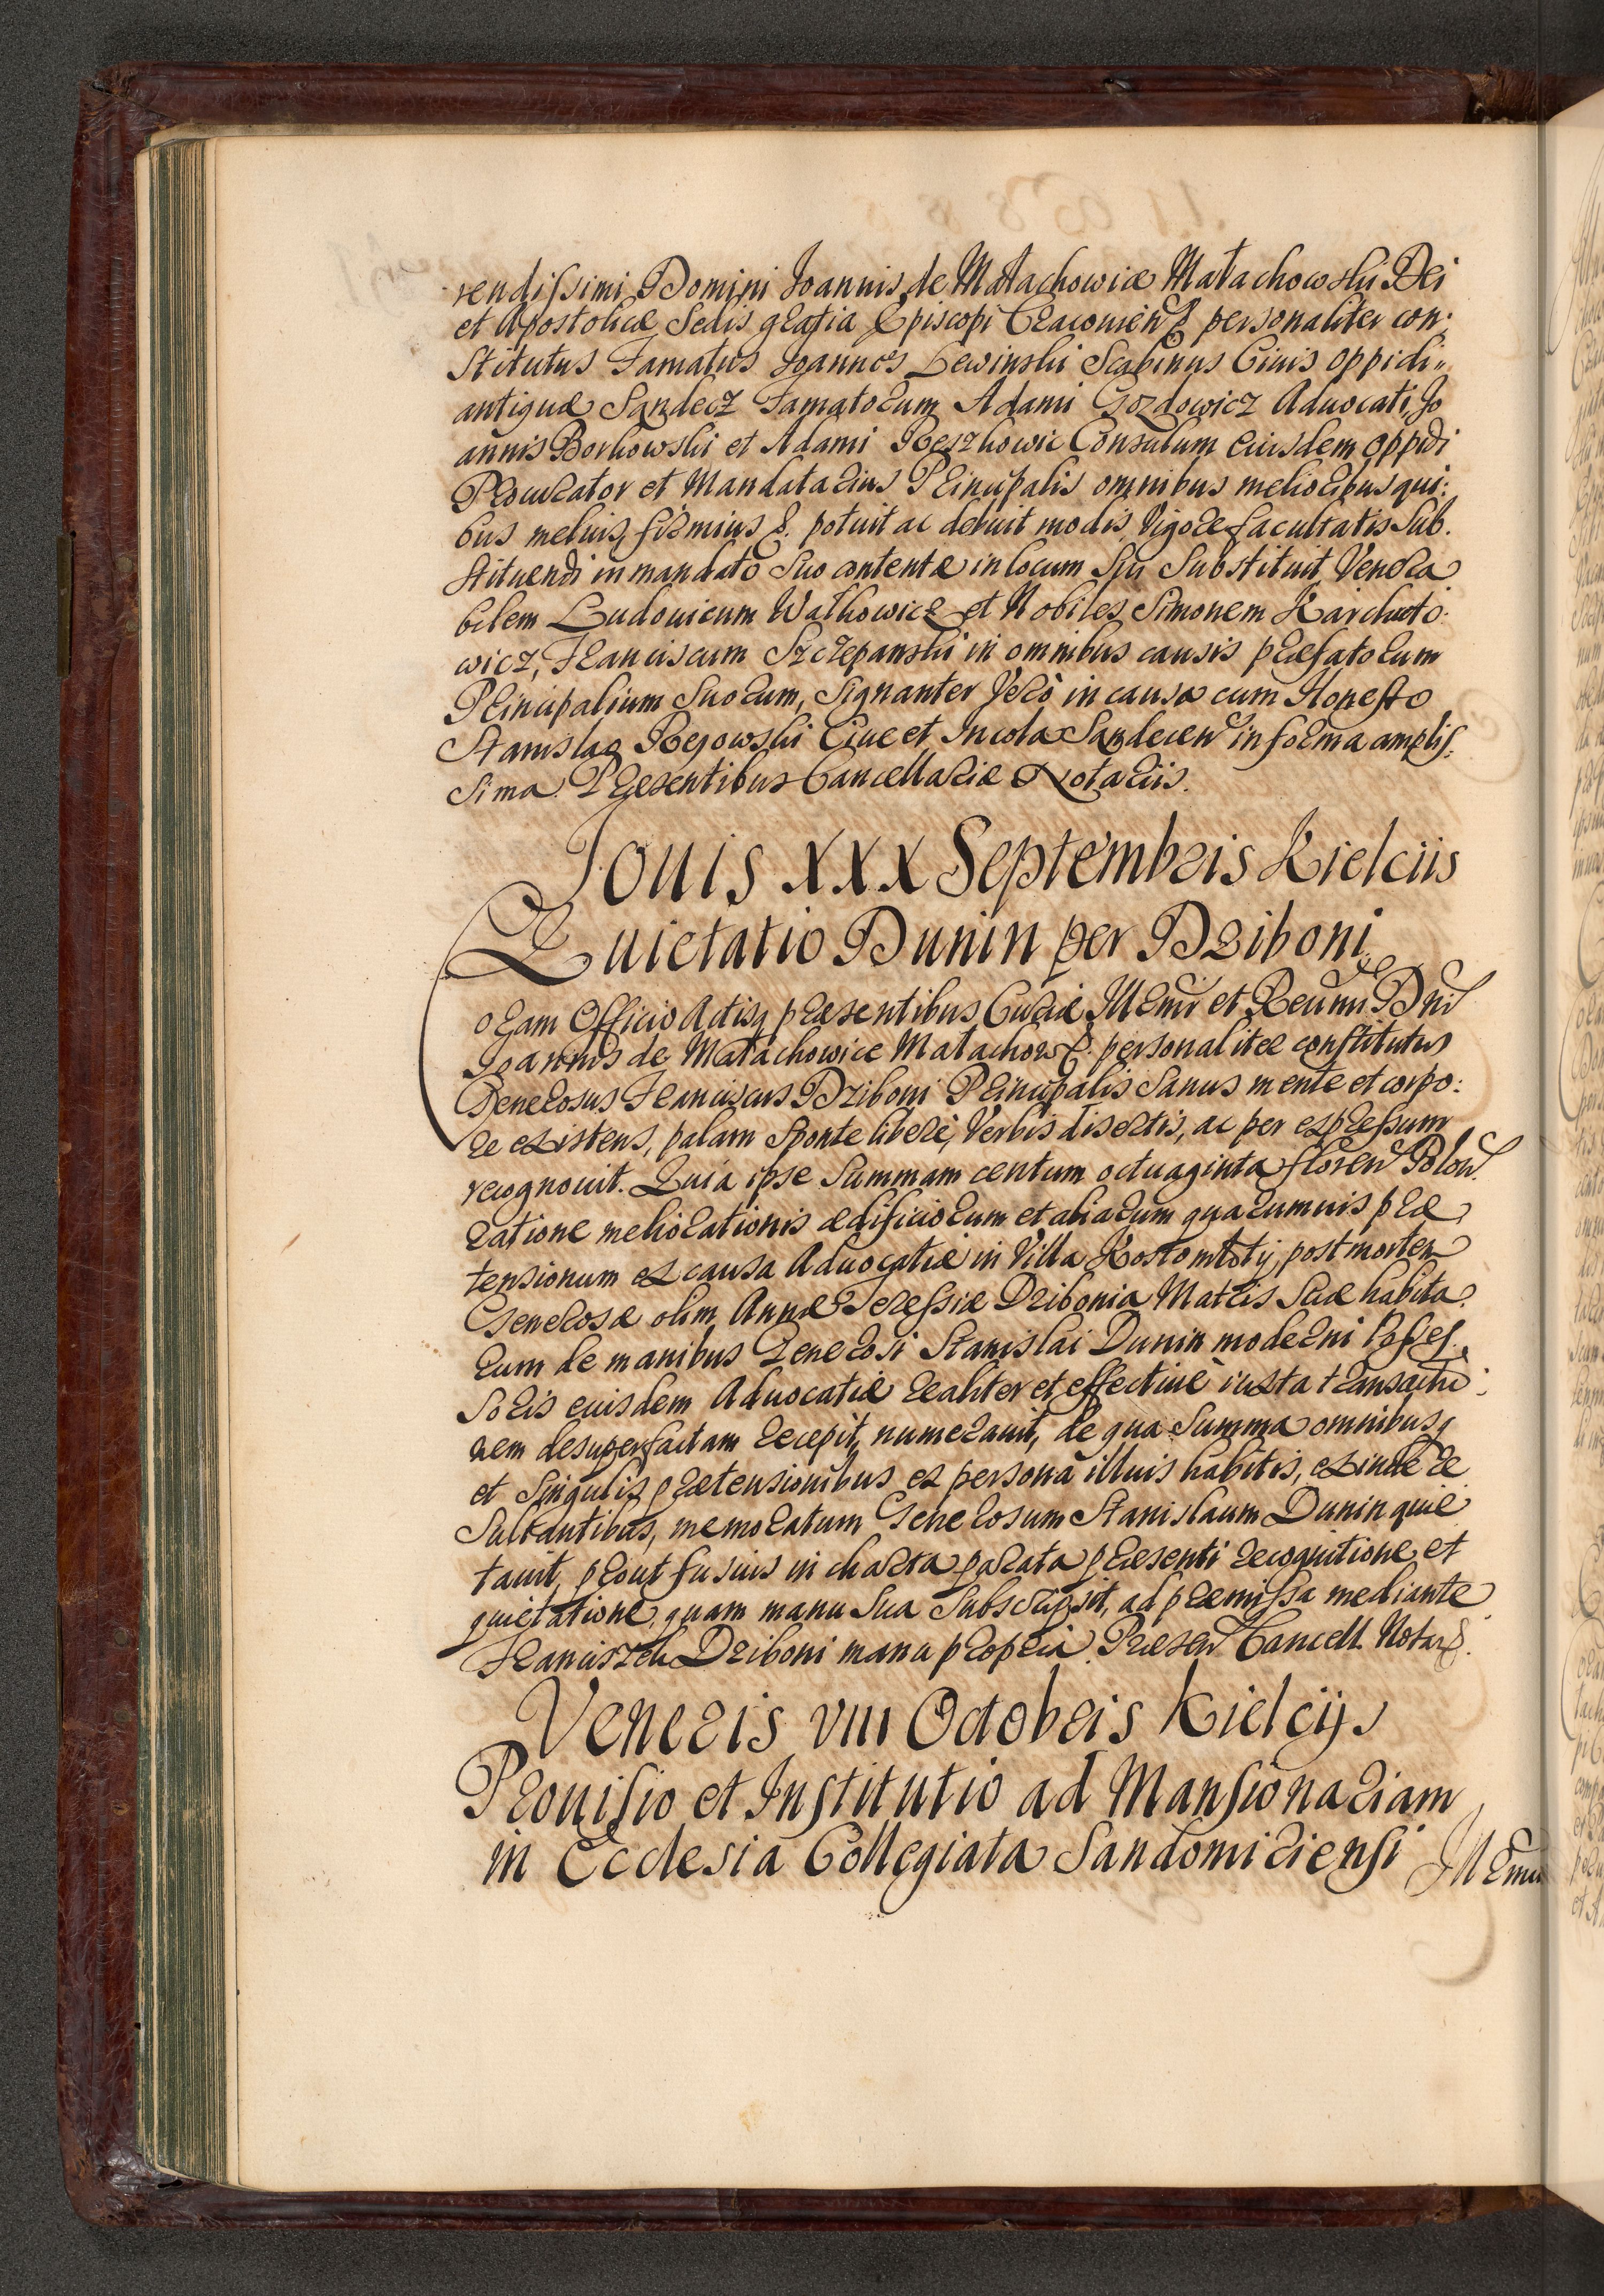 rendissimi Domini Joannis de Małachowice Małachowski Dei
et Apostolicæ Sedis gratia Episcopi Cracovien &. personaliter con:
stitutus Famatus Joannes Lewinski Scabinus Civis oppidi
antiquæ Sandecz Famatorum Adami Gozdowicz Aduocati, Jo
annis Borkowski et Adami Reszkowic Consulum eiusdem oppidi
Procurator et Mandatarius Principalis omnibus melioribus qui:
bus melius, firmius &. potuit ac debuit modis, Vigore facultatis Sub.
stituendi in mandato Suo contentæ in locum Sui Substituit Venera
bilem Ludouicum Wałkowicz et Nobiles Simonem Karchuto:
wicz, Franciscum Szczepanski in omnibus causis præfatorum
Principalium Suorum, Signanter Verò in causa cum Honesto
Stanislao Regowski Ciue et Incola Sandecen in forma amplis.
sima. Præsentibus Cancellariæ Notariis.
Jouis XXX Septembris Kielciis
Quietatio Dunin per Dziboni
oram Officio Actisq præsentibus Curiæ Illmi et Reumi Dni
Joannis de Małachowice Małachows &. personaliter constitutus
Generosus Franciscus Dziboni Principalis Sanus mente et corpo:
re existens, palam Sponte liberè, Verbis disertis, ac per expressum
recognouit. Quia ipse Summam centum octuaginta floren Polon.
ratione meliorationis ædificiorum et aliarum quarumuis præ
tensionum ex causa Aduocatiæ in Villa Kostomłoty, post mortem
Generosæ olim Annæ Teressiæ Dzibonia Matris Suæ habita
rum de manibus Generosi Stanislai Dunin moderni Posses
soris eiusdem Aduocatiæ realiter et effectiuè iuxta transactio
nem desuper factam recepit, numerauit, de qua Summa omnibusq
et Singulis prætensionibus ex persona illius habitis, exinde re
sultantibus, memoratum Generosum Stanislaum Dunin quie
tauit, prout fusius in charta parata præsenti recognitione et
quietatione, quam manu Sua Subscripsit, ad præmissa mediante
Franciszek Dziboni manu propria. Præsen Cancell. Notar &.
Veneris VIII Octobris Kielcijs
Prouisio et Institutio ad Mansionariam
in Ecclesia Collegiata Sandomiriensi